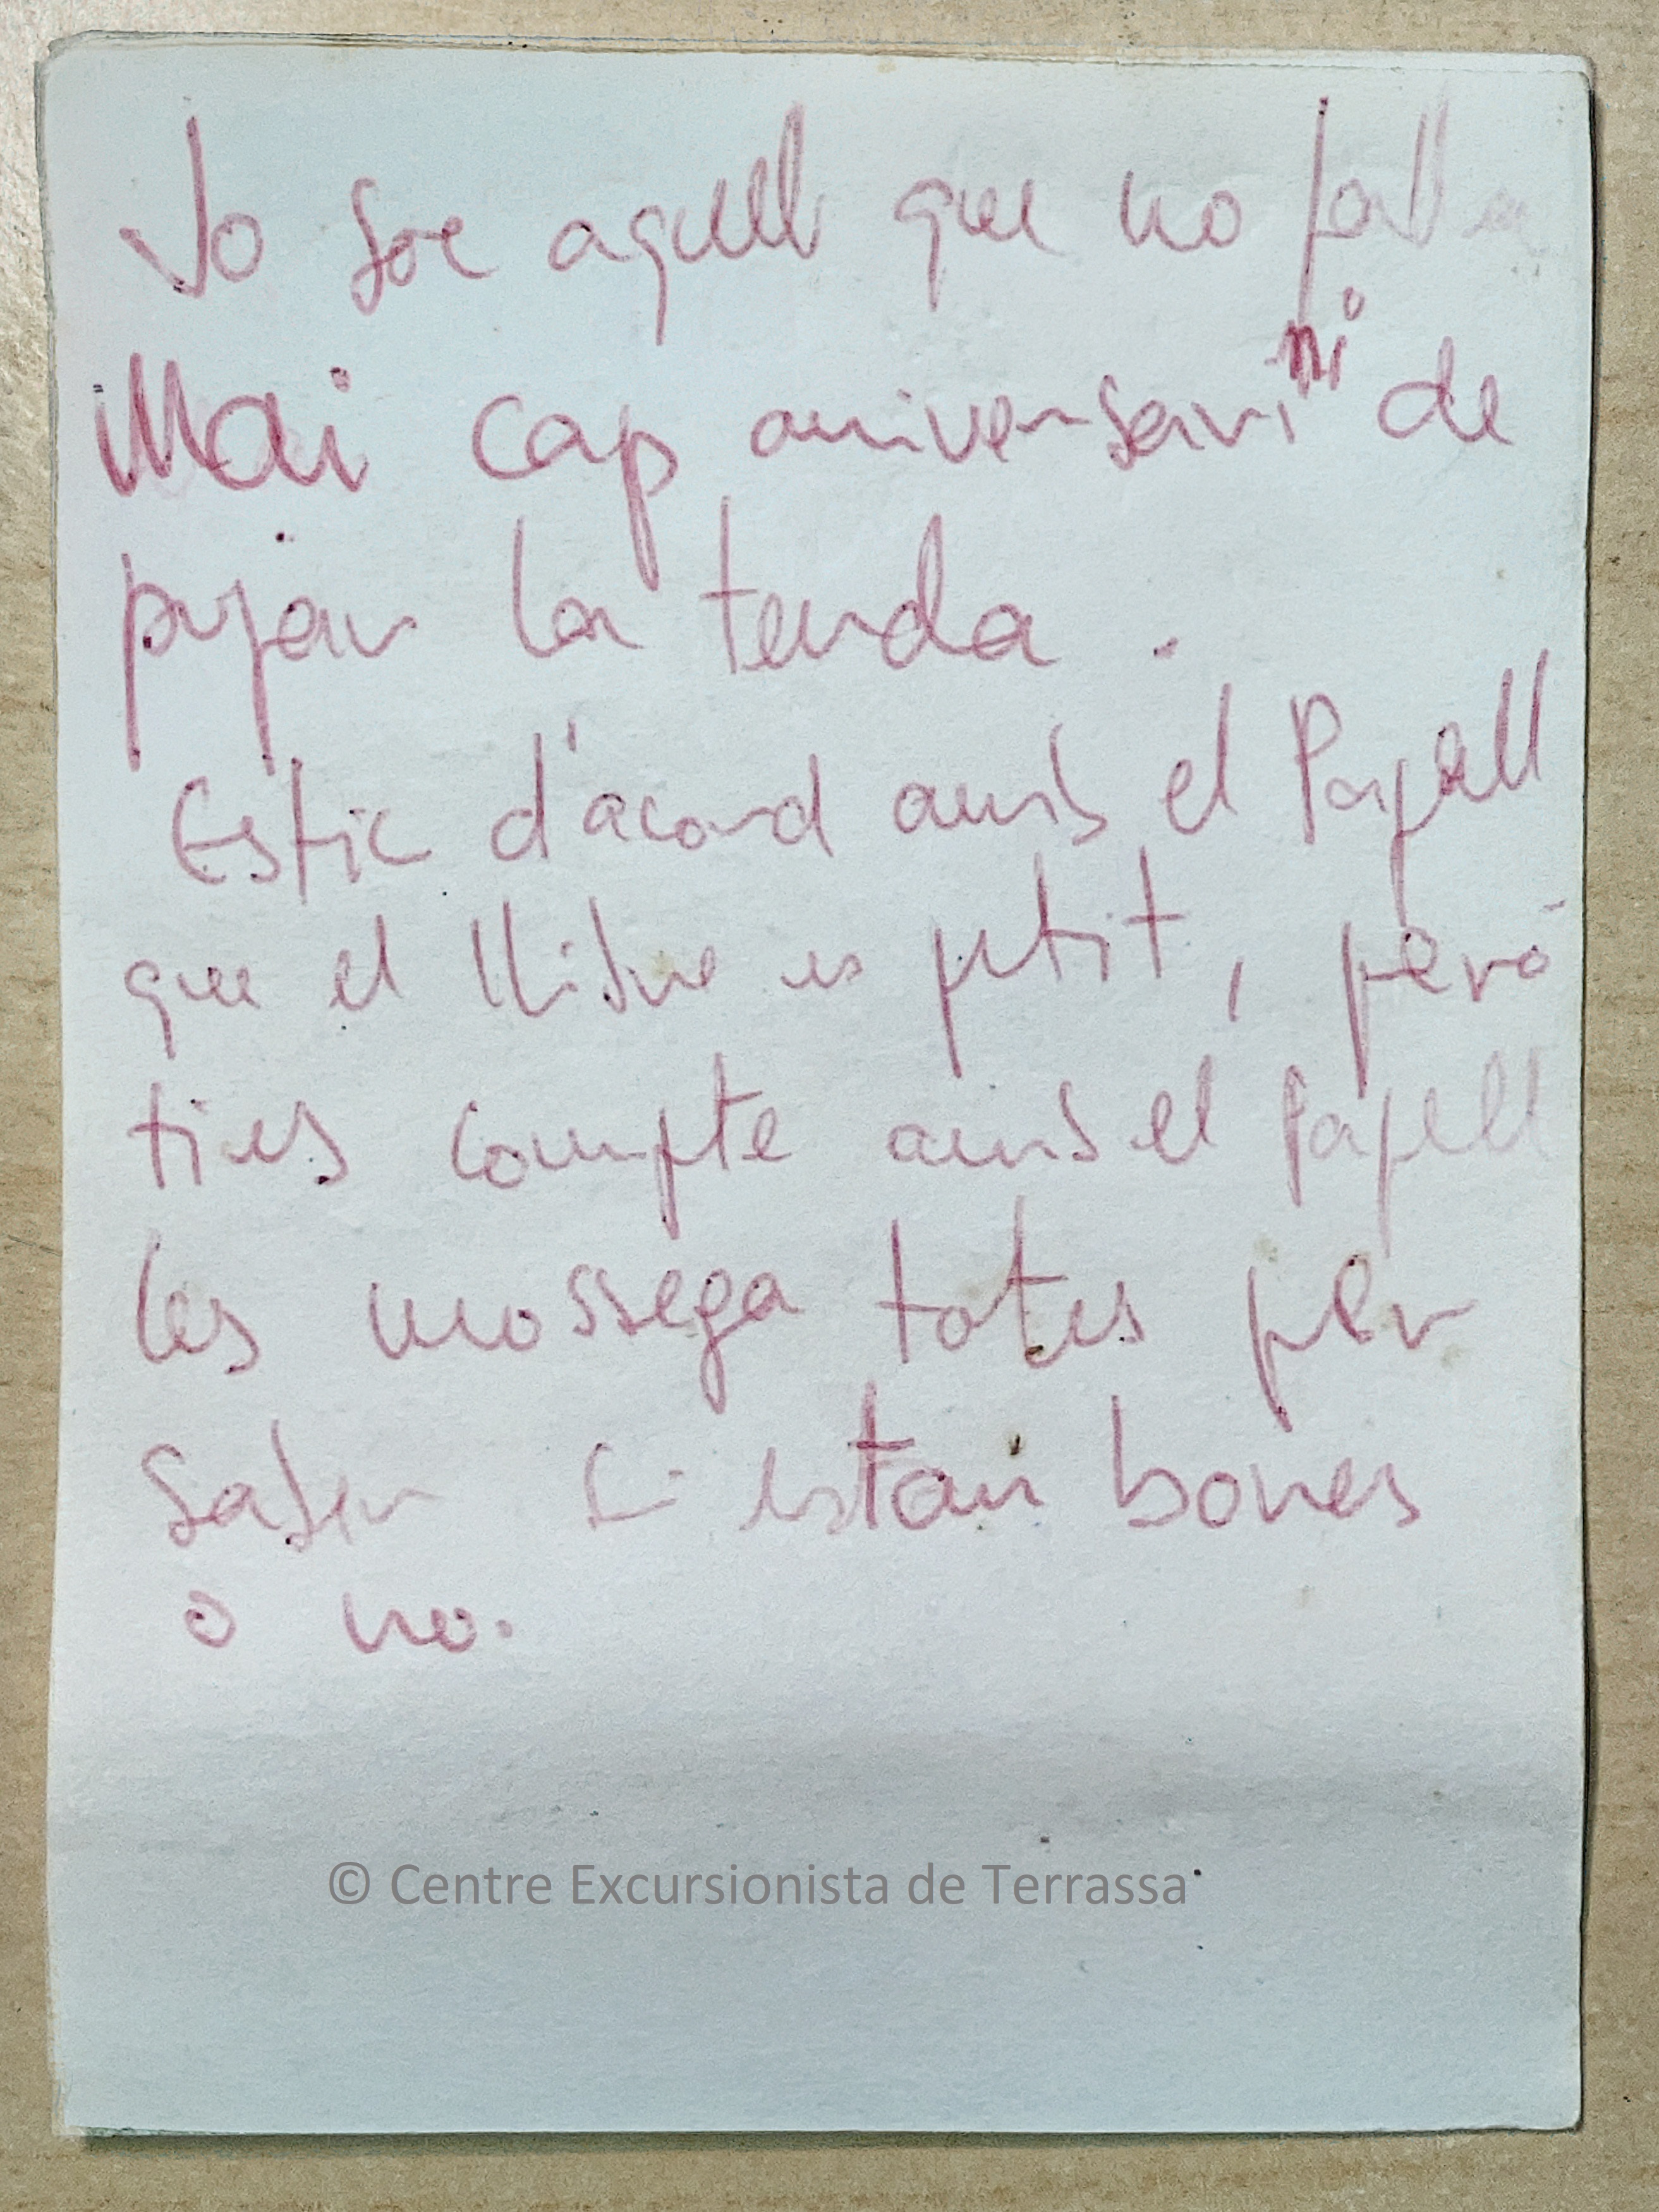 Jo soc aquell que no falla
Mai cap aniversari ni de
pujar la tenda.
Estic d'acord amb el Papell
que el llibre es petit, però
tines compte amb el Papell
les mossega totes per
saber si estan bones
o no.
© Centre Excursionista de Terrassa